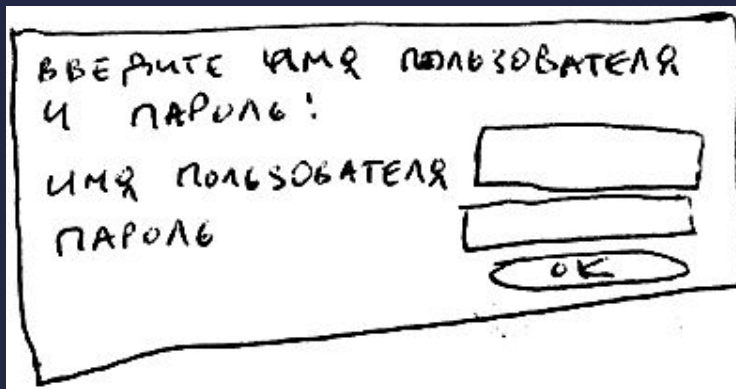 ВВЕДИТЕ ИМЯ ПОЛЬЗОВАТЕЛЯ
И ПАРОЛЬ!
ИМЯ ПОЛЬЗОВАТЕЛЯ
ПАРОЛЬ
ОК